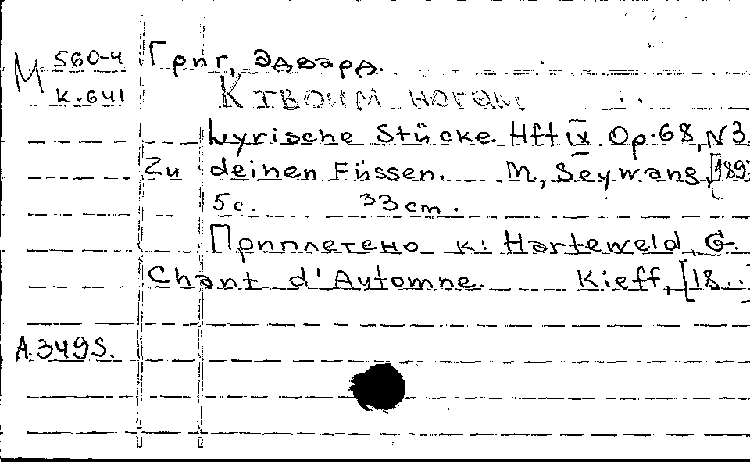 М 560-4 Григ, Эдвард.
К-641 К твоим ногам
Lyrische Stücke. Hft IX Op.68, N3
Zu deinen Füssen. M, Seywang, [189
5c. 33cm.
Приплетено к: Harteweld, G.
Chant d'Automne. Kieff, [18..
A.3495.